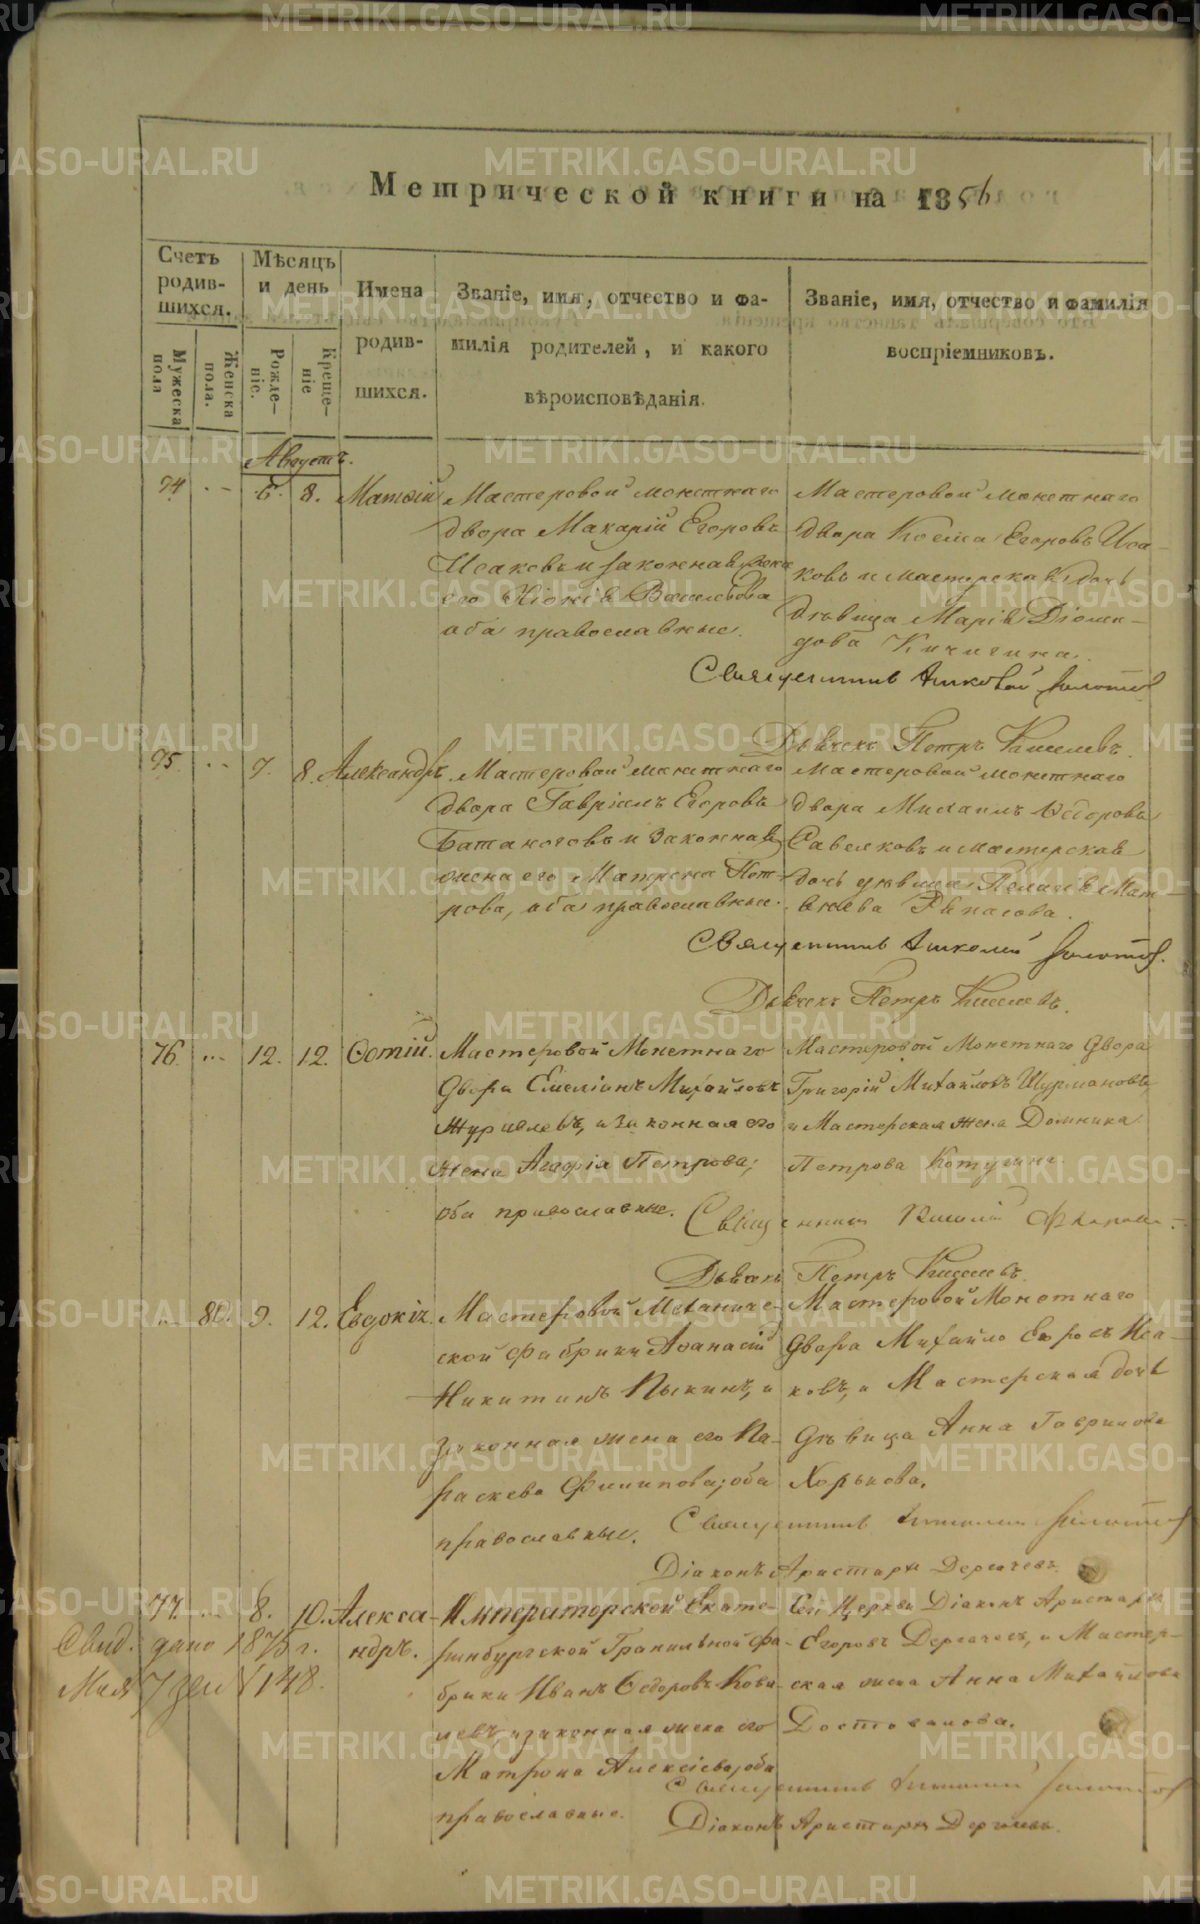 Метрической книги на 1856
Счетъ родив- шихся.
Мѣсяцъ и день
Имена родив- шихся.
Званіе, имя, отчество и фа- милія родителей, и какого вѣроисповѣданія.
Званіе, имя, отчество и фамилія воспріемниковъ.
Мужеска пола
Женска пола.
Рожде- ніе.
Креще- ніе
Августъ.
74 6. 8. Матѳій
Мастеровой монетнаго
двора Макарій Егоровъ
Исаковъ и законная жена
его Хіонія Васильева
оба православные.
Мастеровой монетнаго
двора Косма Егоровъ Иса-
ковъ и мастерская дочь
дѣвица Марія Діоми-
дова Кичигина.
Священникъ
Дьячекъ Петръ Киселевъ.
75. 7. 8. Александръ.
Мастеровой монетнаго
двора Гавріилъ Егоровъ
Батаноговъ и законная
жена его Матрена Пет-
рова, оба православные.
Мастеровой монетнаго
двора Михаилъ Ѳедоровъ
Савелковъ и мастерская
дочь дѣвица Пелагія Мат-
вѣева
Священникъ
Дьячекъ Петръ Киселевъ.
76. 12. 12. Фотій.
Мастеровой Монетнаго
двора Емеліанъ Михайловъ
и законная его
жена Агафія Петрова;
оба православные.
Мастеровой Монетнаго двора
Григорій Михайловъ Шурмановъ,
и Мастерская жена Домника
Петрова
Священникъ
Дьячекъ Петръ Киселевъ.
80. 9. 12. Евдокія.
Мастеровой Механиче-
ской фабрики Аѳанасій
Никитинъ Пыкинъ, и
законная жена его Па-
раскева Филипова; оба
православные.
Мастеровой Монетнаго
двора Михайло Егоровъ Иса-
ковъ, и Мастерская дочь
дѣвица Анна Гаврилова
Хорькова.
Священникъ
Діаконъ Аристархъ Дергачевъ.
77. 8. 10. Алекса-
ндръ.
Императорской Екате-
ринбургской Гранильной Фа-
брики Иванъ Ѳедоровъ
и законная жена его
Матрона Алексіева, оба
православные.
Сей Церкви Діаконъ Аристархъ
Егоровъ Дергачевъ, и Мастер-
ская жена Анна Михайлова
Достовалова.
Священникъ
Діаконъ Аристархъ Дергачевъ.
Свид. дано 1875 г.
Мая 7 дня № 148.
METRIKI.GASO-URAL.RU